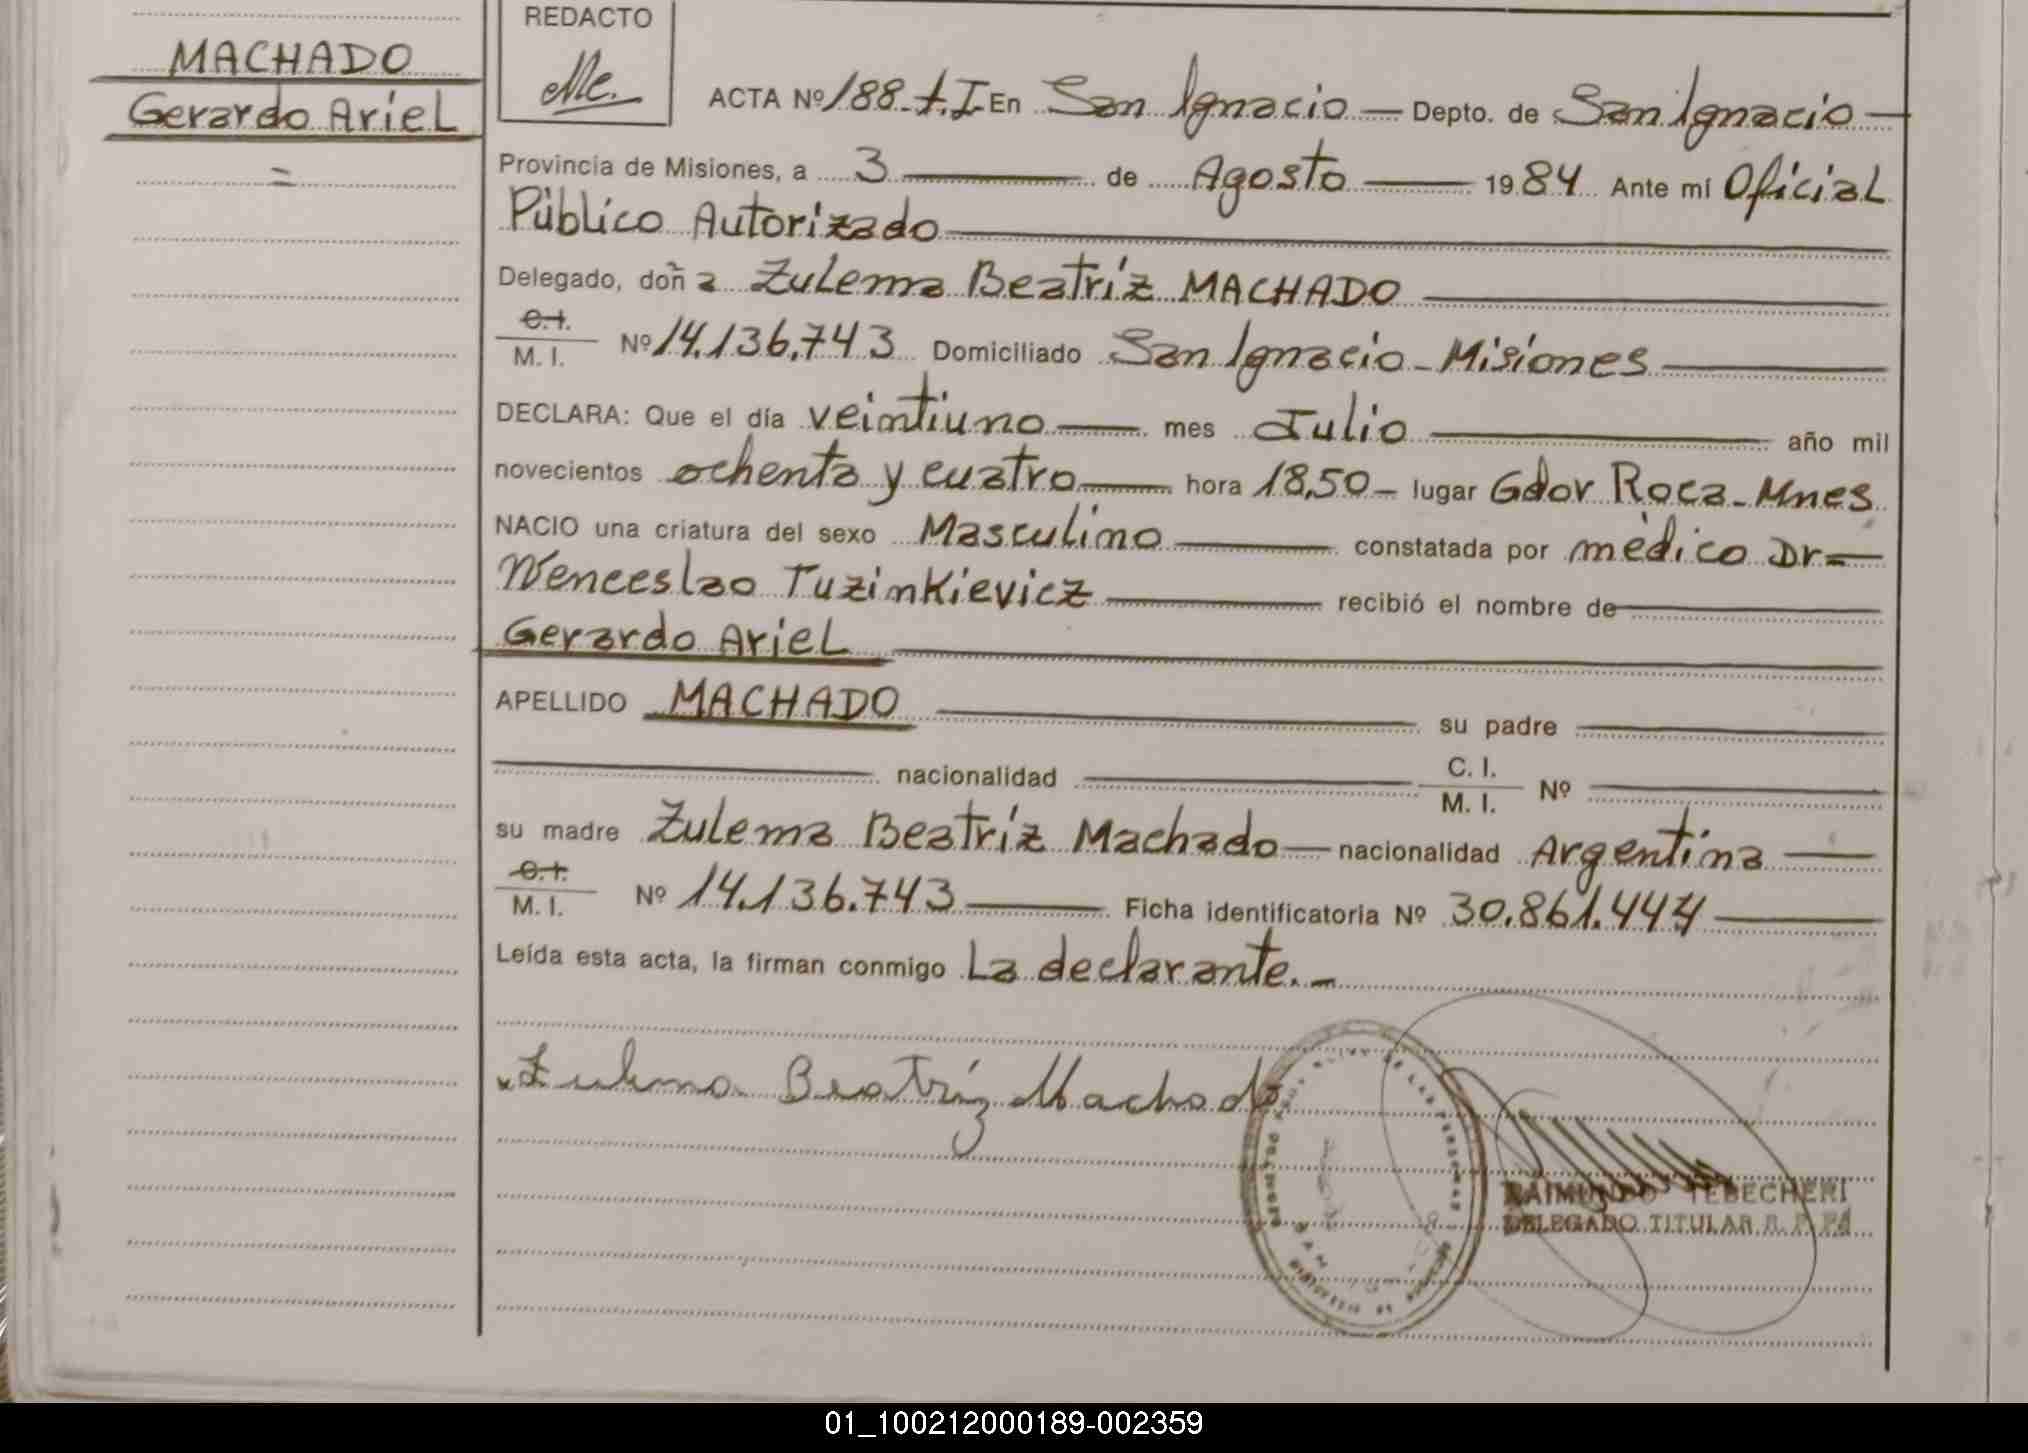 MACHADO
Gerardo Ariel
=
REDACTO
ACTA Nº 188-t.I En San Ignacio — Depto. de San Ignacio —
Provincia de Misiones, a 3 — de Agosto — 1984 Ante mí Oficial
Público Autorizado —
Delegado, doña Zulema Beatríz MACHADO —
C.I.
M. I. Nº 14.136.743 Domiciliado San Ignacio - Misiones —
DECLARA: Que el día veintiuno — mes Julio — año mil
novecientos ochenta y cuatro — hora 18,50 — lugar Gdor Roca - Mnes
NACIO una criatura del sexo Masculino — constatada por médico Dr=
Wenceslao Tuzinkievicz — recibió el nombre de —
Gerardo Ariel —
APELLIDO MACHADO — su padre —
— nacionalidad — C. I.
M. I. Nº —
su madre Zulema Beatríz Machado — nacionalidad Argentina —
C.I.
M. I. Nº 14.136.743 — Ficha identificatoria Nº 30.861.444 —
Leída esta acta, la firman conmigo La declarante. -
Zulema Beatríz Machado
RAIMUNDO TEBECHERI
DELEGADO TITULAR R. P.
01_100212000189-002359